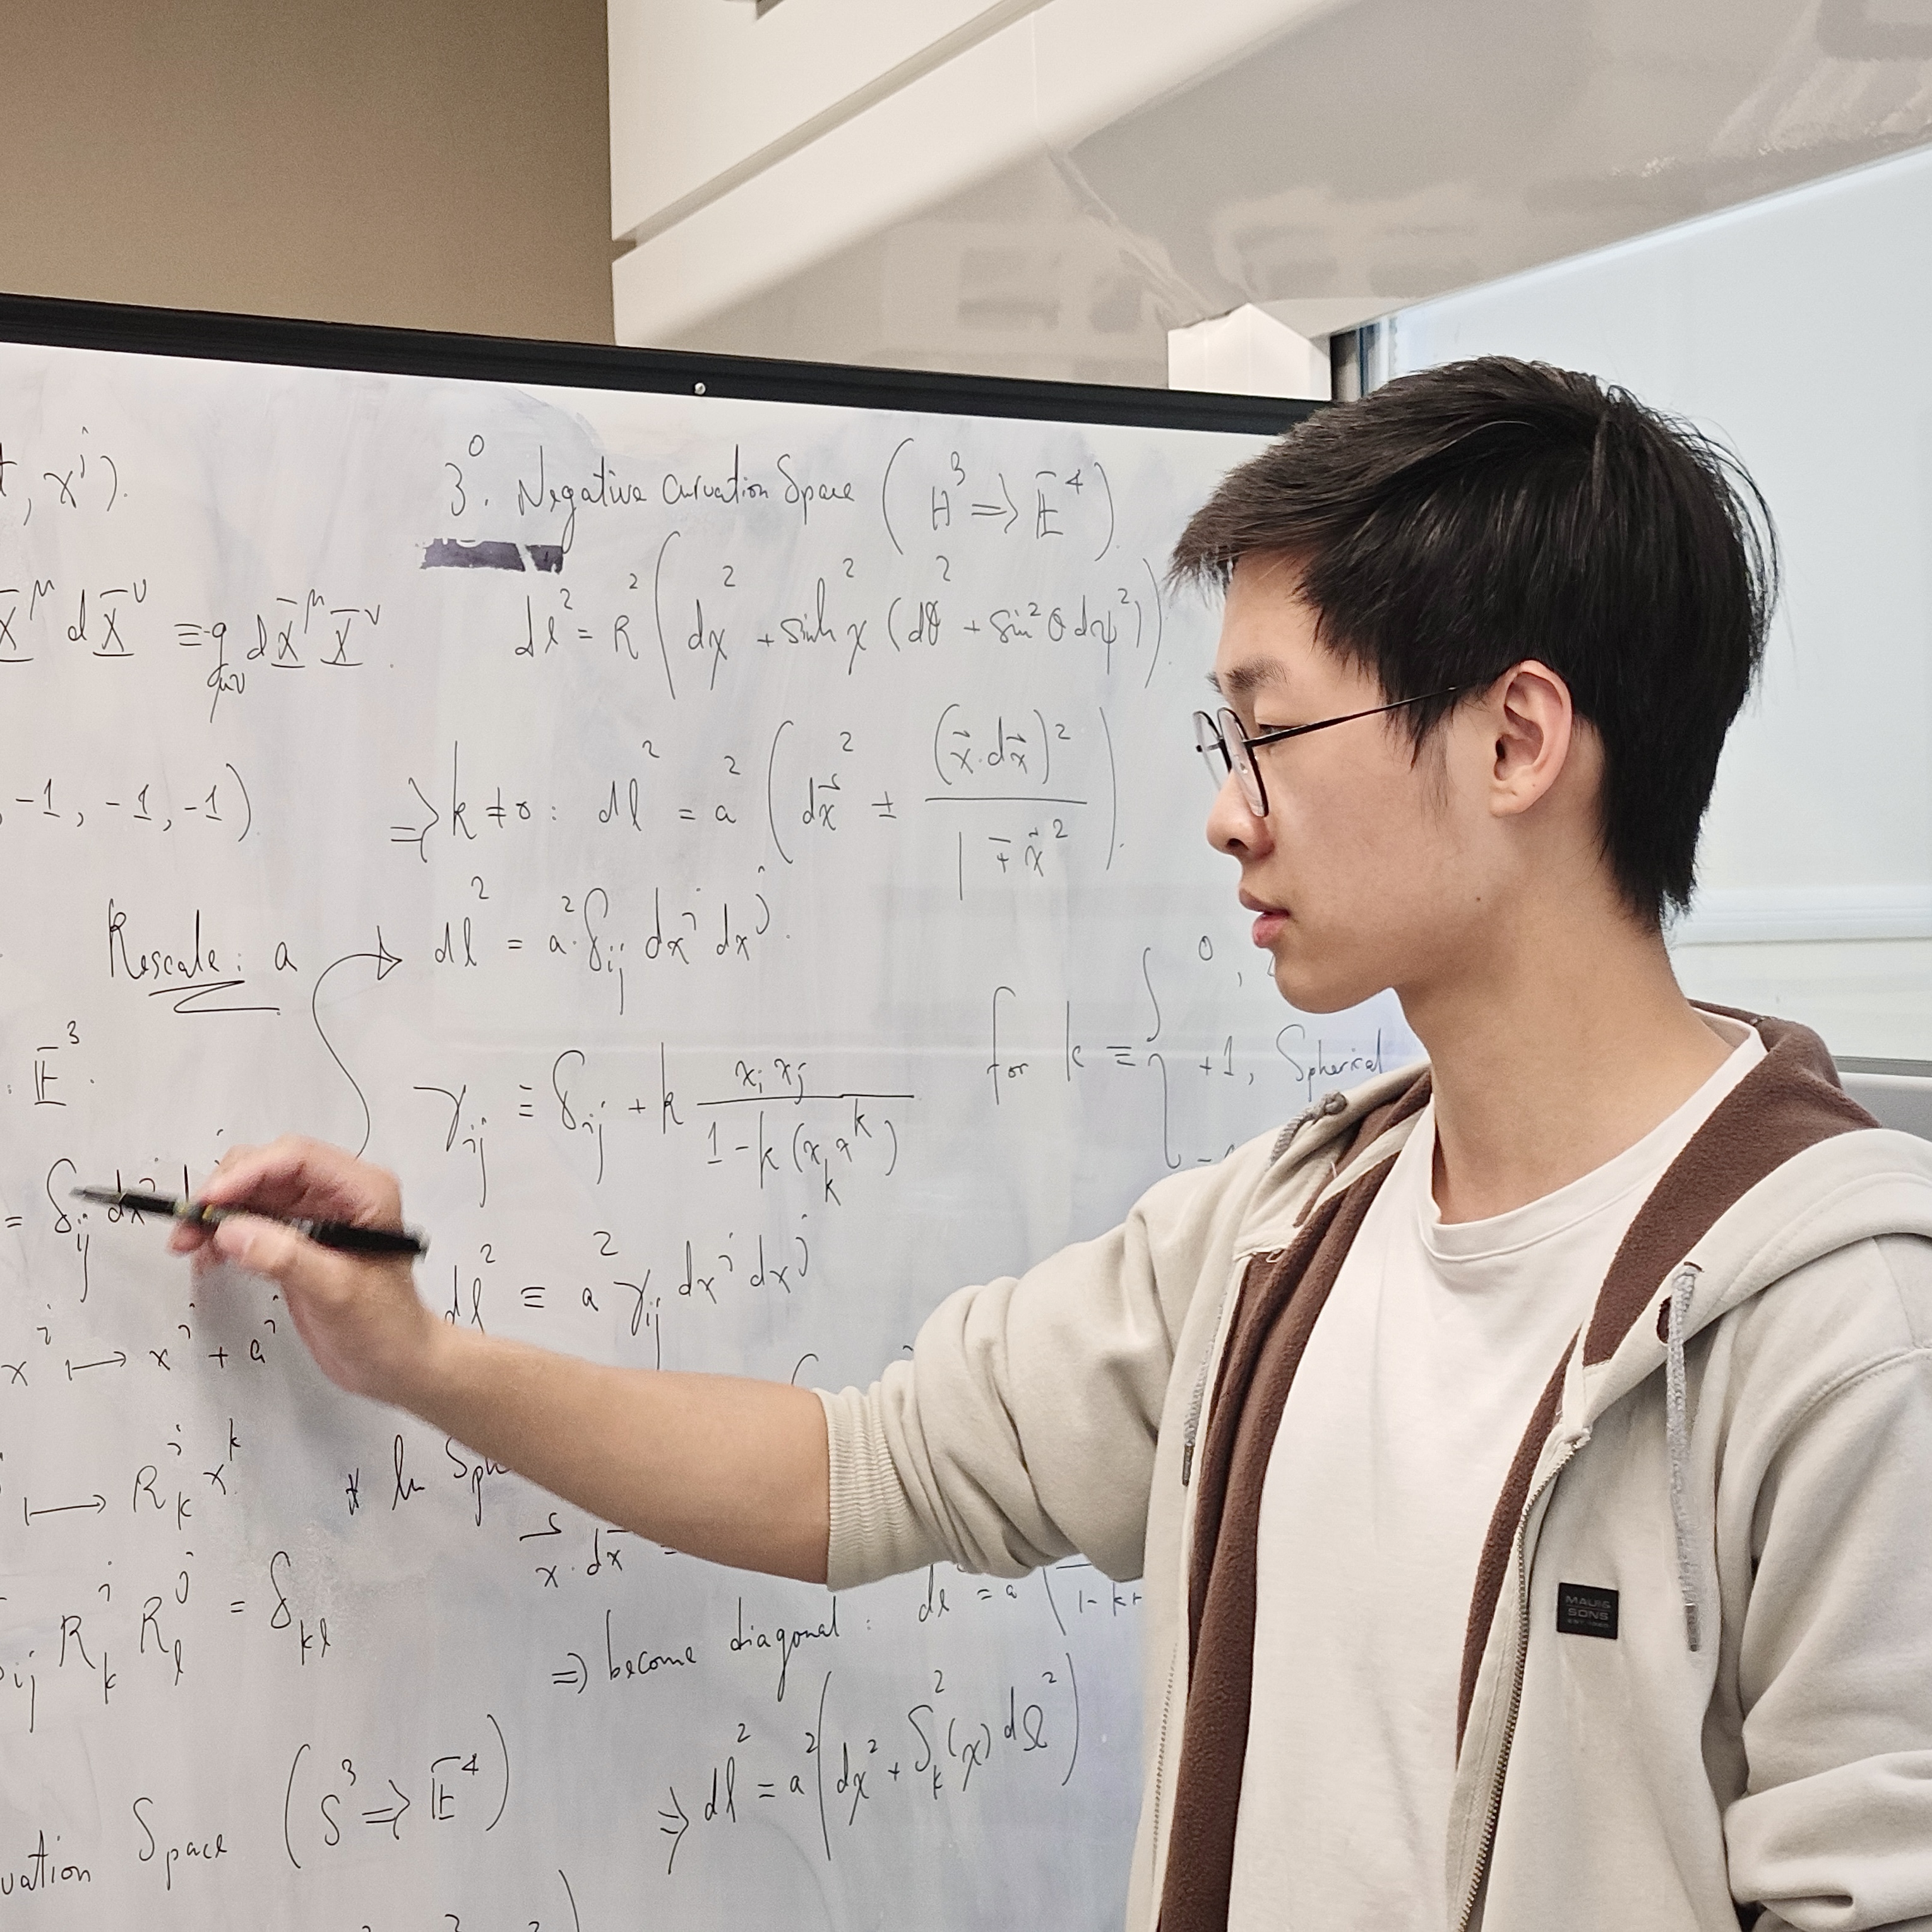 , xⁱ).
X̄^μ dX̄^ν ≡ g_μν dX̄^μ X̄^ν.
, -1, -1, -1)
Rescale: a
E³.
= δ_ij dx
xⁱ ↦ xⁱ + aⁱ
↦ Rⁱ_k x^k
_ij Rⁱ_k R^j_l = δ_kl
Space (S³ ⇒ E⁴)
3⁰. Negative curvation Space (H³ ⇒ E⁴)
dl² = R² (dχ² + sinh² χ (dθ² + sin² θ dψ²))
⇒ k ≠ 0 : dl² = a² (dx⃗² ± (x⃗.dx⃗)² / 1 ∓ x⃗²).
dl² = a². δ_ij dxⁱ dx^j.
γ_ij ≡ δ_ij + k x_i x_j / 1 - k (x_k x^k)
for k ≡ { 0,
+1, Spherical
dl² ≡ a² γ_ij dxⁱ dx^j
* In Sph
x⃗.dx⃗ =
⇒ become diagonal : dl² = a² ( 1 - kr
⇒ dl² = a² (dχ² + S²_k(χ) dΩ²)
MAUI &
SONS